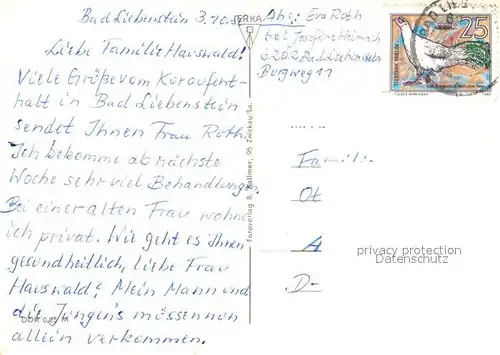 Bad Liebenstein 3.10.
Liebe Familie Hauswald!
Viele Grüße vom Kuraufent-
halt in Bad Liebenstein
sendet Ihnen Frau Roth.
Ich bekomme ab nächste
Woche sehr viel Behandlungen
Bei einer alten Frau wohne
ich privat. Wie geht es Ihnen
gesundheitlich, liebe Frau
Hauswald? Mein Mann und
die Jungen's müssen nun
allein verkommen.
DDR 0,25 M
Fotoverlag R. Kallmer, 95 Zwickau Sa.
Abs.: Eva Roth
bei Josefine Heimrich
6202 Bad Liebenstein
Burgweg 11
25
BAD LIEB
Famili
Ot
A
D-
privacy protection
Datenschutz